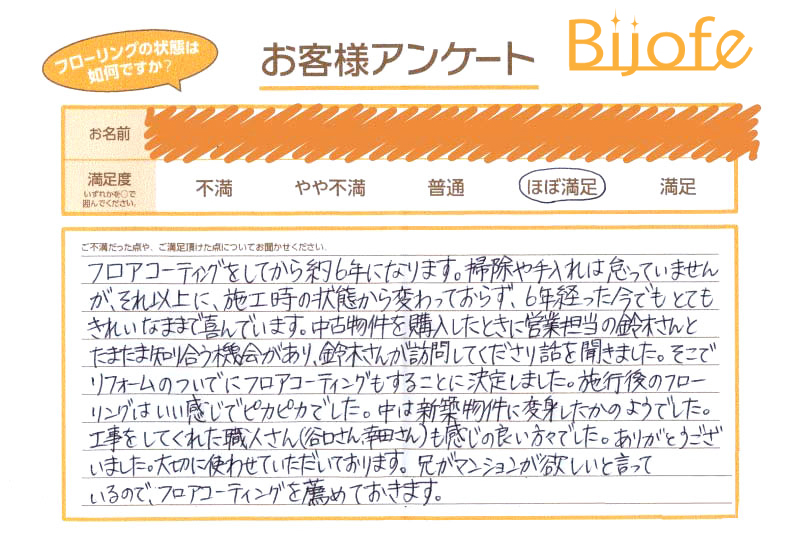 フローリングの状態は
如何ですか?
お客様アンケート
Bijofe
お名前
満足度
いずれかを○で
囲んでください。
不満 やや不満 普通 ほぼ満足 満足
ご不満だった点や、ご満足頂けた点についてお聞かせください。
フロアコーティングをしてから約6年になります。掃除や手入れは怠っていません
が、それ以上に、施工時の状態から変わっておらず、6年経った今でもとても
きれいなままで喜んでいます。中古物件を購入したときに営業担当の鈴木さんと
たまたま知り合う機会があり、鈴木さんが訪問してくださり話を聞きました。そこで
リフォームのついでにフロアコーティングもすることに決定しました。施行後のフロー
リングはいい感じでピカピカでした。中は新築物件に変身したかのようでした。
工事をしてくれた職人さん(谷口さん、幸田さん)も感じの良い方々でした。ありがとうござ
いました。大切に使わせていただいております。兄がマンションが欲しいと言って
いるので、フロアコーティングを薦めておきます。